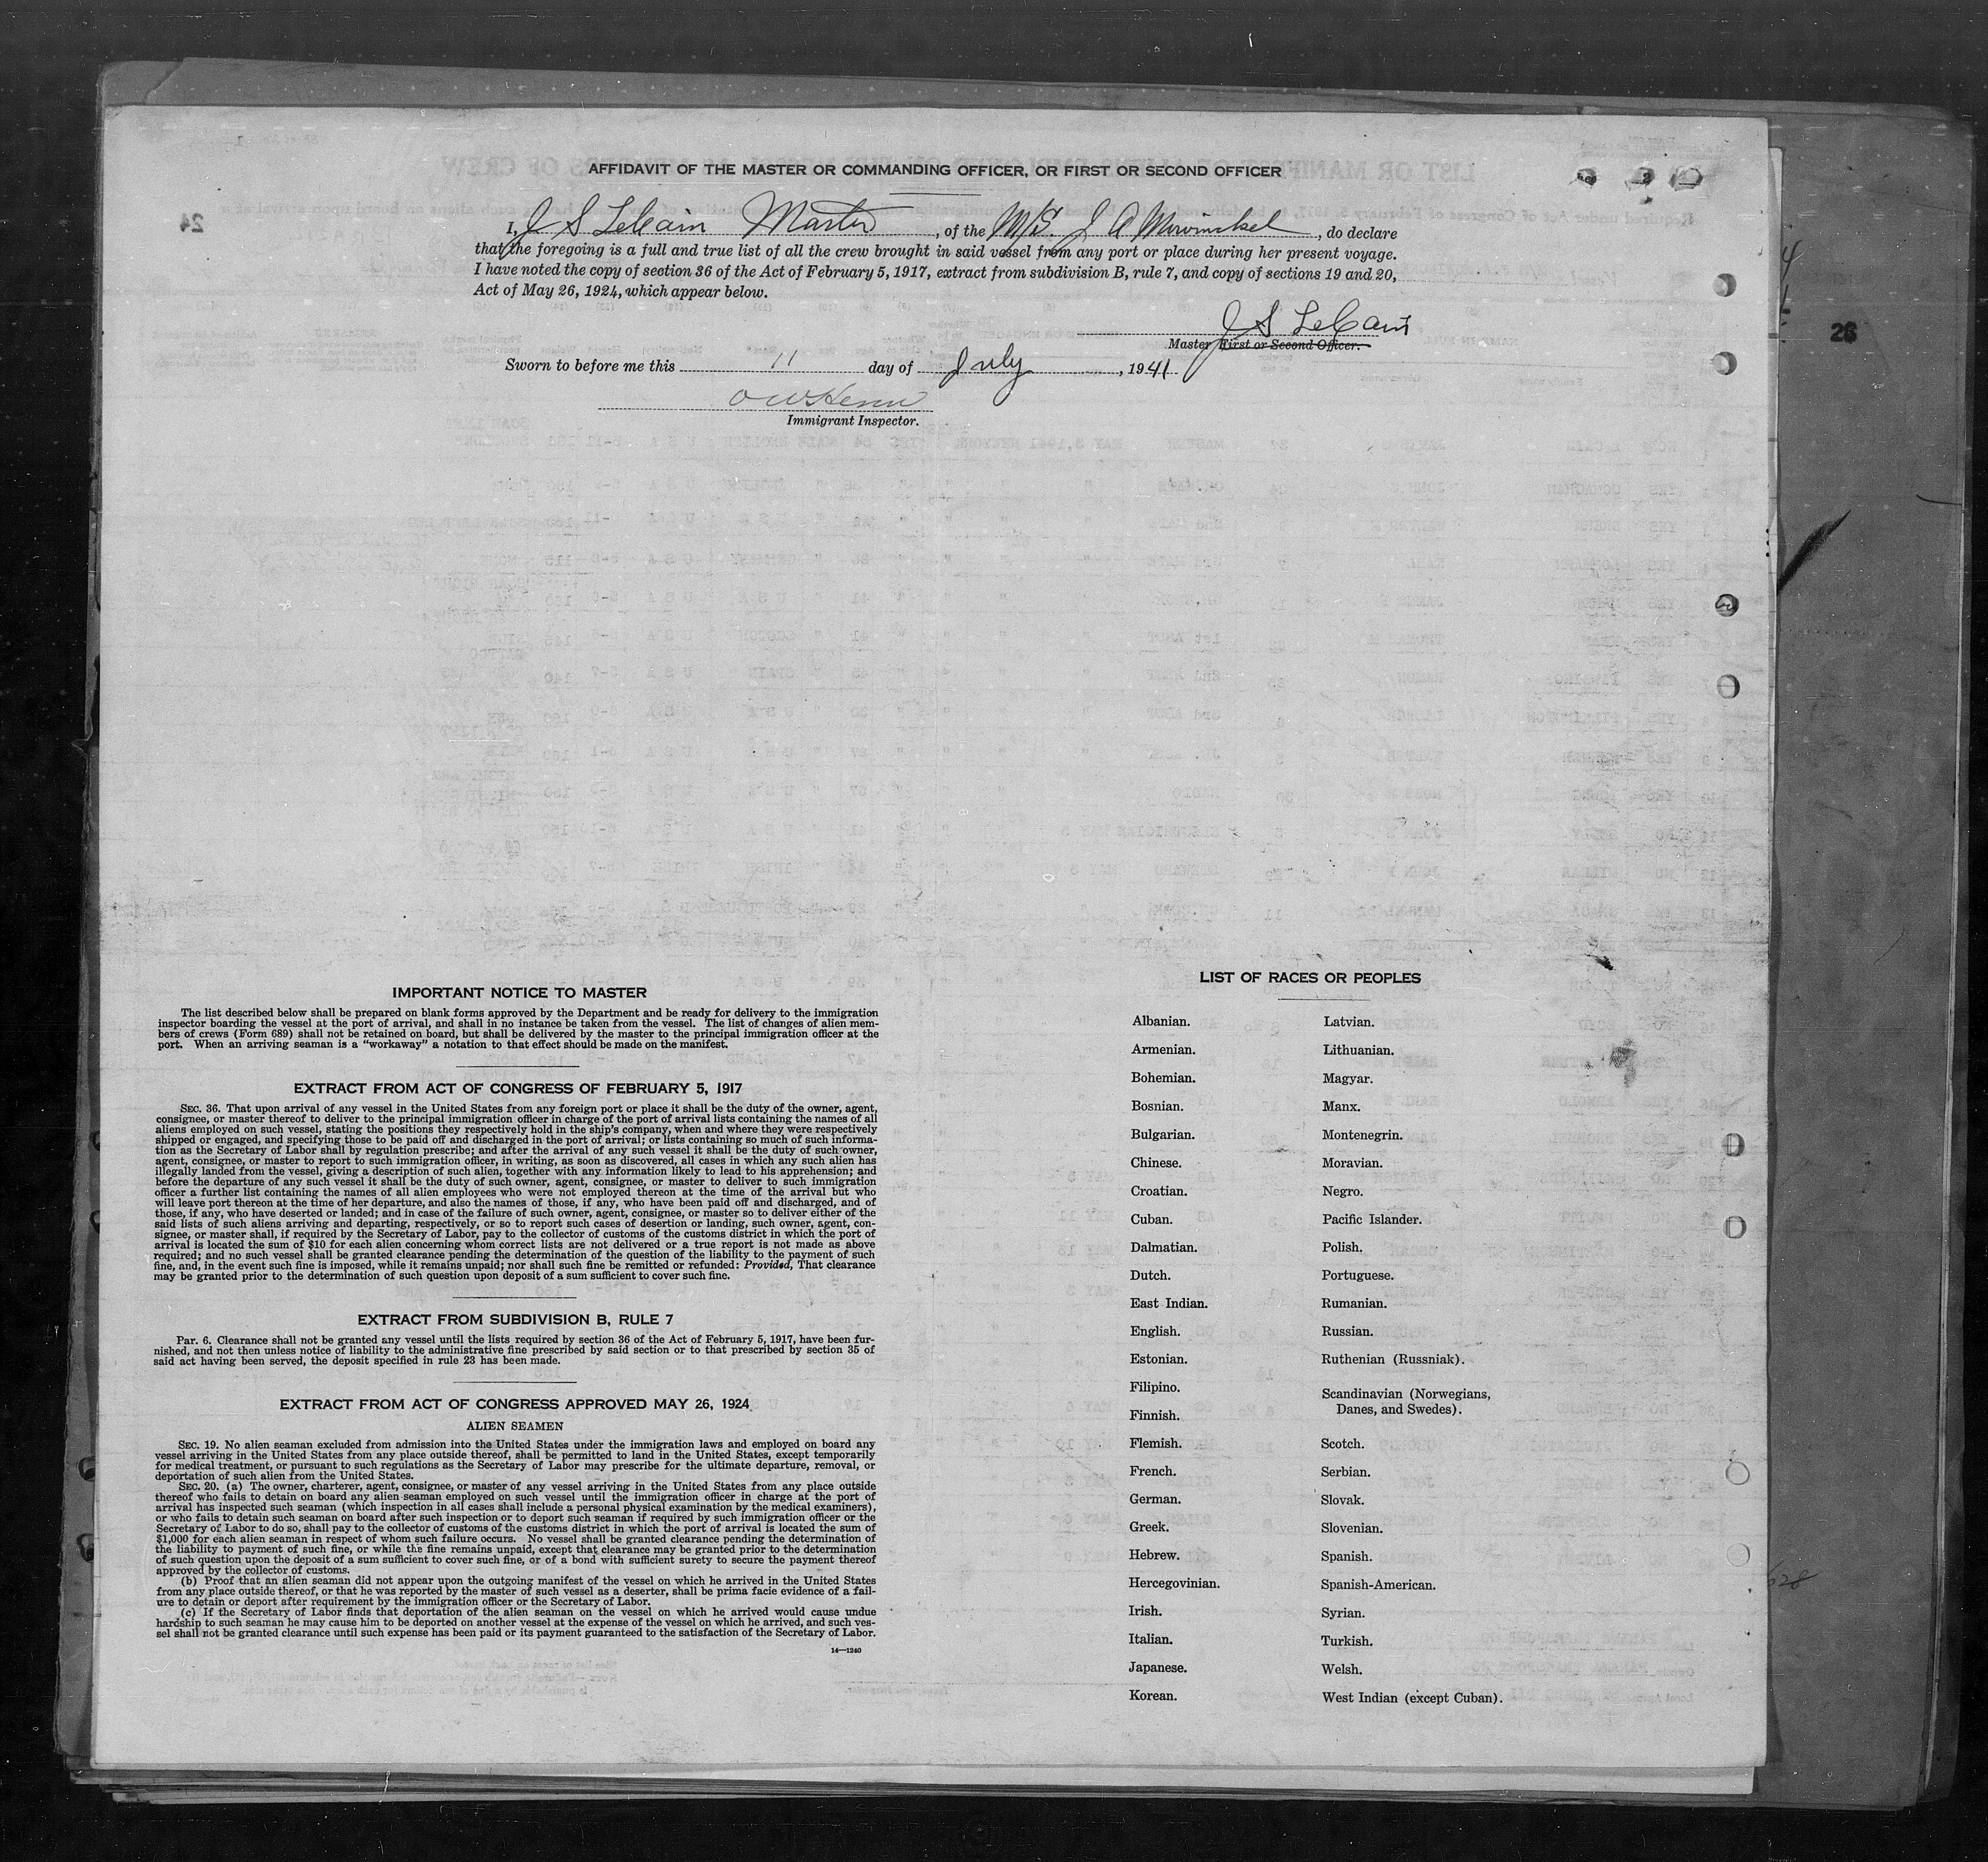 AFFIDAVIT OF THE MASTER OR COMMANDING OFFICER, OR FIRST OR SECOND OFFICER
I, J S LeCain Master, of the M/S. J A Mowinckel, do declare
that the foregoing is a full and true list of all the crew brought in said vessel from any port or place during her present voyage.
I have noted the copy of section 36 of the Act of February 5, 1917, extract from subdivision B, rule 7, and copy of sections 19 and 20,
Act of May 26, 1924, which appear below.
J S LeCain
Master First or Second Officer.
Sworn to before me this 11 day of July, 1941
Immigrant Inspector.
26
24
IMPORTANT NOTICE TO MASTER
The list described below shall be prepared on blank forms approved by the Department and be ready for delivery to the immigration
inspector boarding the vessel at the port of arrival, and shall in no instance be taken from the vessel. The list of changes of alien mem-
bers of crews (Form 689) shall not be retained on board, but shall be delivered by the master to the principal immigration officer at the
port. When an arriving seaman is a "workaway" a notation to that effect should be made on the manifest.
EXTRACT FROM ACT OF CONGRESS OF FEBRUARY 5, 1917
SEC. 36. That upon arrival of any vessel in the United States from any foreign port or place it shall be the duty of the owner, agent,
consignee, or master thereof to deliver to the principal immigration officer in charge of the port of arrival lists containing the names of all
aliens employed on such vessel, stating the positions they respectively hold in the ship's company, when and where they were respectively
shipped or engaged, and specifying those to be paid off and discharged in the port of arrival; or lists containing so much of such informa-
tion as the Secretary of Labor shall by regulation prescribe; and after the arrival of any such vessel it shall be the duty of such owner,
agent, consignee, or master to report to such immigration officer, in writing, as soon as discovered, all cases in which any such alien has
illegally landed from the vessel, giving a description of such alien, together with any information likely to lead to his apprehension; and
before the departure of any such vessel it shall be the duty of such owner, agent, consignee, or master to deliver to such immigration
officer a further list containing the names of all alien employees who were not employed thereon at the time of the arrival but who
will leave port thereon at the time of her departure, and also the names of those, if any, who have been paid off and discharged, and of
those, if any, who have deserted or landed; and in case of the failure of such owner, agent, consignee, or master so to deliver either of the
said lists of such aliens arriving and departing, respectively, or so to report such cases of desertion or landing, such owner, agent, con-
signee, or master shall, if required by the Secretary of Labor, pay to the collector of customs of the customs district in which the port of
arrival is located the sum of $10 for each alien concerning whom correct lists are not delivered or a true report is not made as above
required; and no such vessel shall be granted clearance pending the determination of the question of the liability to the payment of such
fine, and, in the event such fine is imposed, while it remains unpaid; nor shall such fine be remitted or refunded: Provided, That clearance
may be granted prior to the determination of such question upon deposit of a sum sufficient to cover such fine.
EXTRACT FROM SUBDIVISION B, RULE 7
Par. 6. Clearance shall not be granted any vessel until the lists required by section 36 of the Act of February 5, 1917, have been fur-
nished, and not then unless notice of liability to the administrative fine prescribed by said section or to that prescribed by section 35 of
said act having been served, the deposit specified in rule 23 has been made.
EXTRACT FROM ACT OF CONGRESS APPROVED MAY 26, 1924
ALIEN SEAMEN
SEC. 19. No alien seaman excluded from admission into the United States under the immigration laws and employed on board any
vessel arriving in the United States from any place outside thereof, shall be permitted to land in the United States, except temporarily
for medical treatment, or pursuant to such regulations as the Secretary of Labor may prescribe for the ultimate departure, removal, or
deportation of such alien from the United States.
SEC. 20. (a) The owner, charterer, agent, consignee, or master of any vessel arriving in the United States from any place outside
thereof who fails to detain on board any alien seaman employed on such vessel until the immigration officer in charge at the port of
arrival has inspected such seaman (which inspection in all cases shall include a personal physical examination by the medical examiners),
or who fails to detain such seaman on board after such inspection or to deport such seaman if required by such immigration officer or the
Secretary of Labor to do so, shall pay to the collector of customs of the customs district in which the port of arrival is located the sum of
$1,000 for each alien seaman in respect of whom such failure occurs. No vessel shall be granted clearance pending the determination of
the liability to payment of such fine, or while the fine remains unpaid, except that clearance may be granted prior to the determination
of such question upon the deposit of a sum sufficient to cover such fine, or of a bond with sufficient surety to secure the payment thereof
approved by the collector of customs.
(b) Proof that an alien seaman did not appear upon the outgoing manifest of the vessel on which he arrived in the United States
from any place outside thereof, or that he was reported by the master of such vessel as a deserter, shall be prima facie evidence of a fail-
ure to detain or deport after requirement by the immigration officer or the Secretary of Labor.
(c) If the Secretary of Labor finds that deportation of the alien seaman on the vessel on which he arrived would cause undue
hardship to such seaman he may cause him to be deported on another vessel at the expense of the vessel on which he arrived, and such ves-
sel shall not be granted clearance until such expense has been paid or its payment guaranteed to the satisfaction of the Secretary of Labor.
14—1240
LIST OF RACES OR PEOPLES
Albanian.
Armenian.
Bohemian.
Bosnian.
Bulgarian.
Chinese.
Croatian.
Cuban.
Dalmatian.
Dutch.
East Indian.
English.
Estonian.
Filipino.
Finnish.
Flemish.
French.
German.
Greek.
Hebrew.
Hercegovinian.
Irish.
Italian.
Japanese.
Korean.
Latvian.
Lithuanian.
Magyar.
Manx.
Montenegrin.
Moravian.
Negro.
Pacific Islander.
Polish.
Portuguese.
Rumanian.
Russian.
Ruthenian (Russniak).
Scandinavian (Norwegians,
Danes, and Swedes).
Scotch.
Serbian.
Slovak.
Slovenian.
Spanish.
Spanish-American.
Syrian.
Turkish.
Welsh.
West Indian (except Cuban).